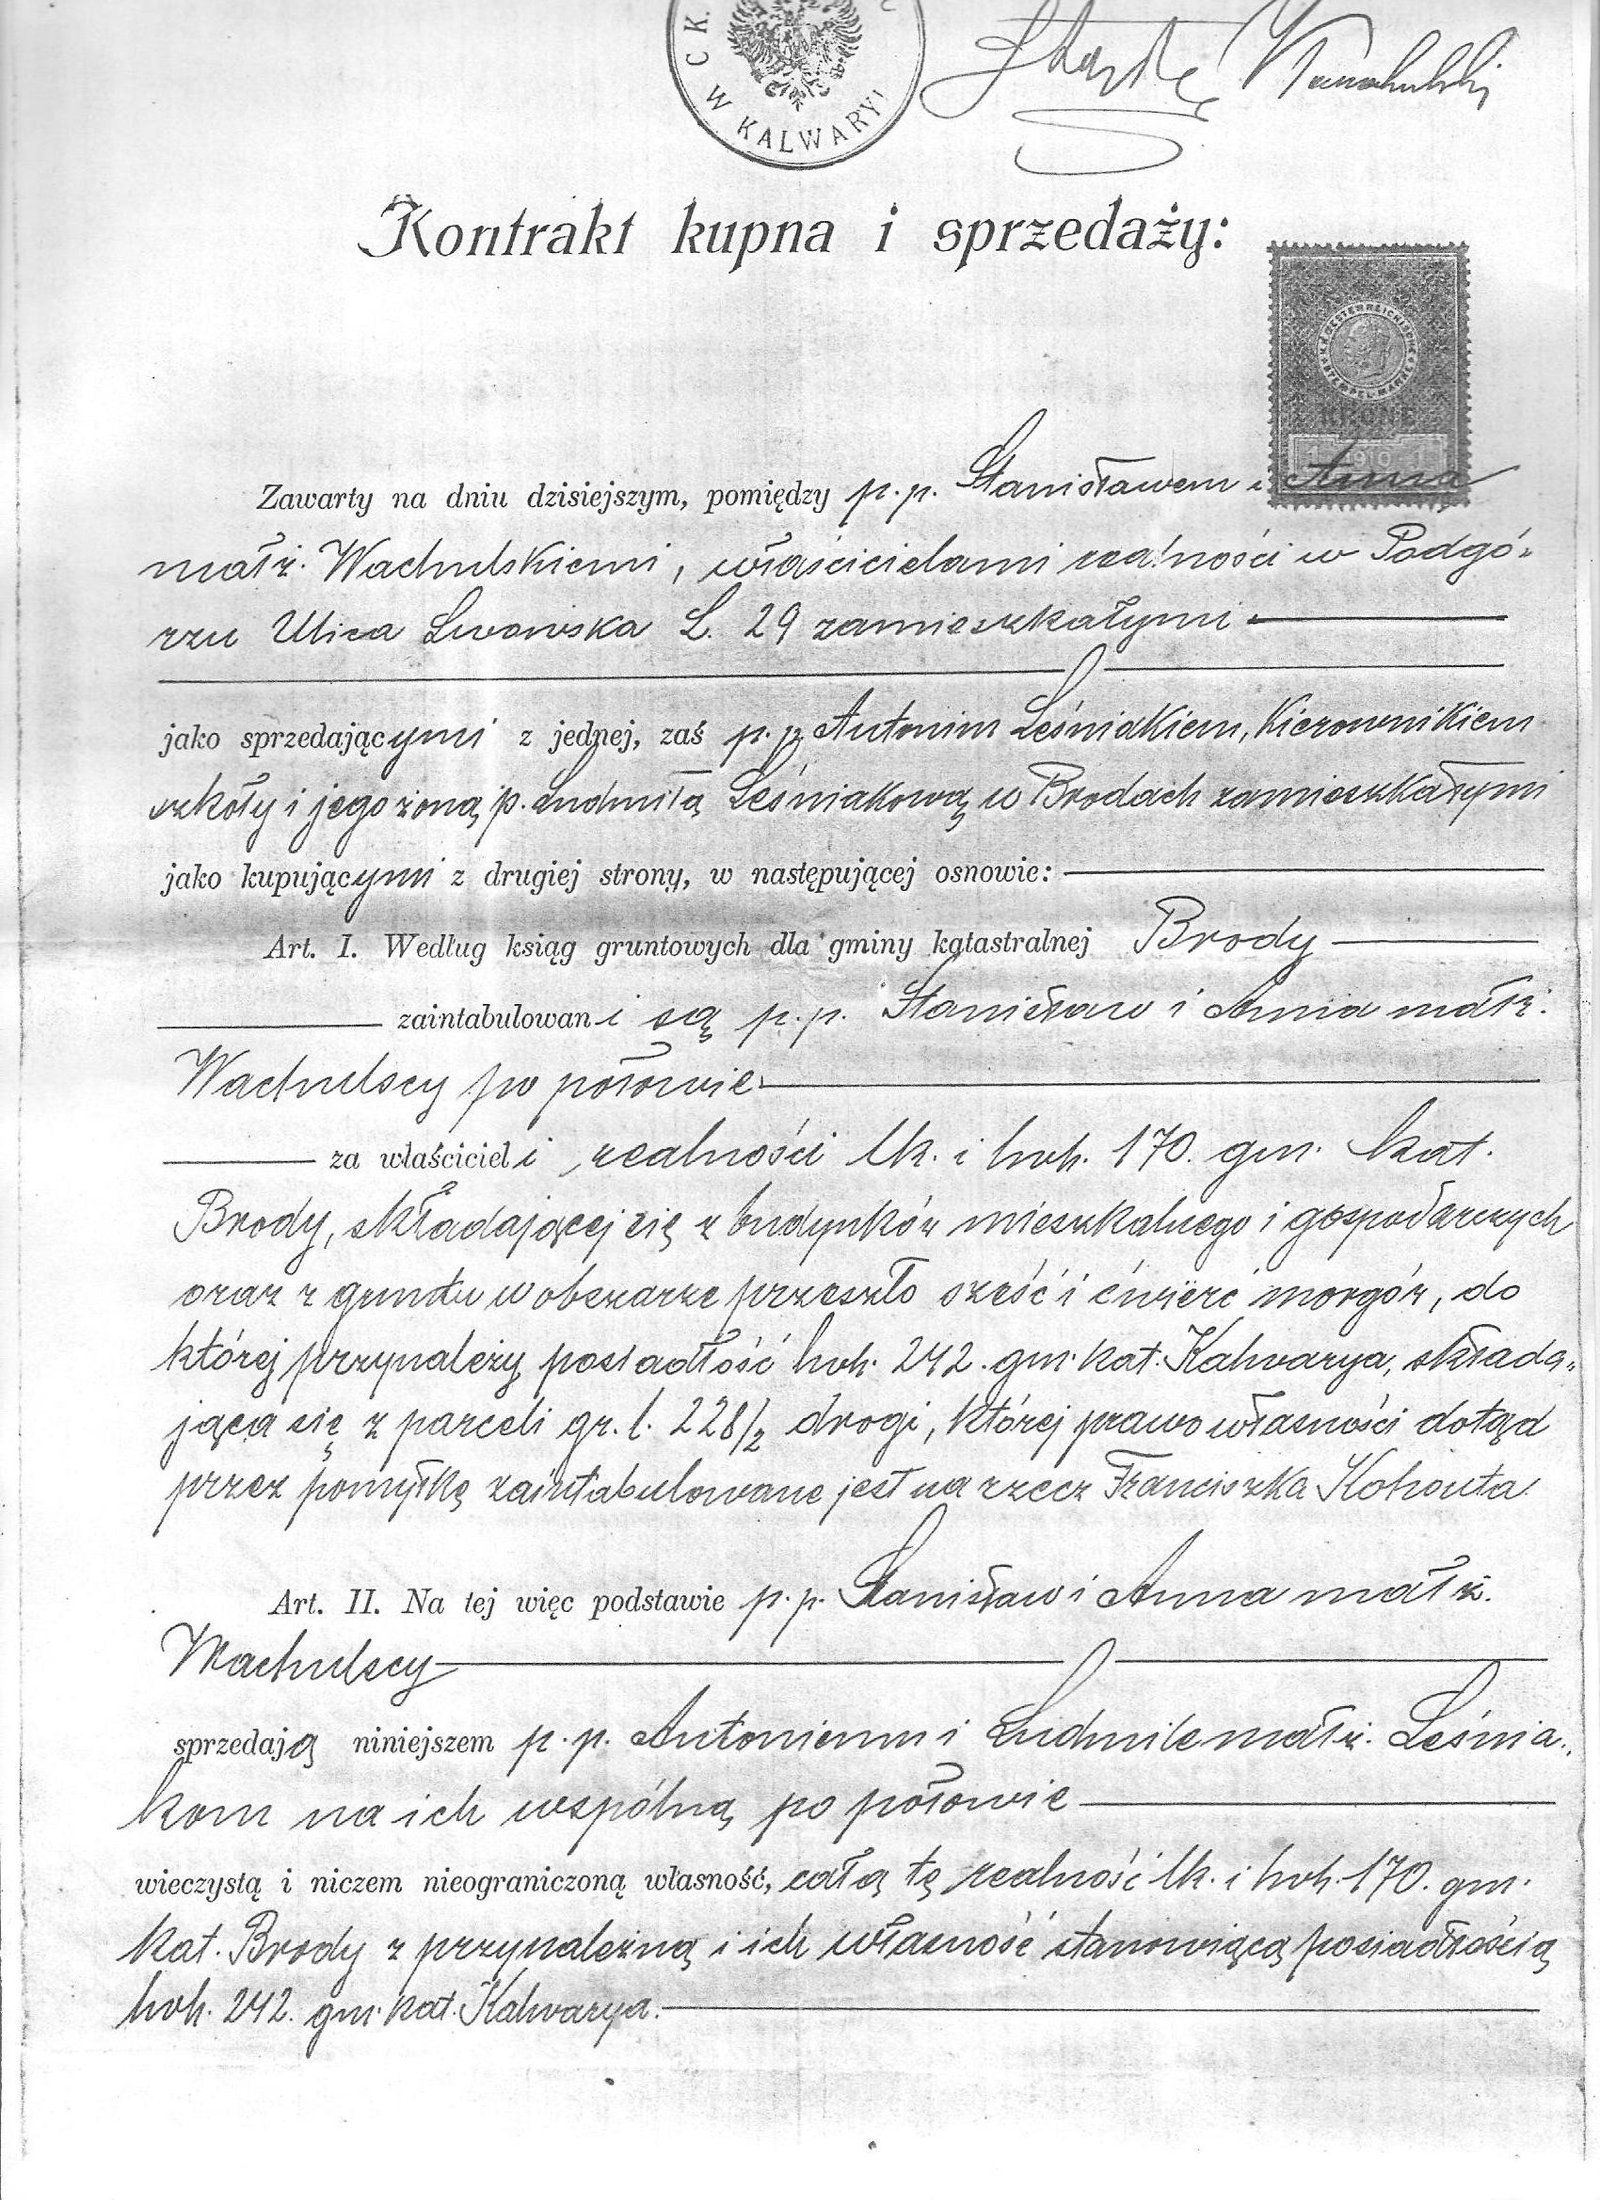 C. K.
W KALWARYI
Kontrakt kupna i sprzedaży:
OESTERREICHISCHE
STEMPELMARKE
KRONE
1901
Zawarty na dniu dzisiejszym, pomiędzy p.p. Stanisławem i Anną
małż. Wachulskiemi, właścicielami realności w Podgó-
rzu Ulica Lwowska L. 29 zamieszkałymi
jako sprzedającymi z jednej, zaś p.p. Antonim Leśniakiem, Kierownikiem
szkoły i jego żoną p. Ludmiłą Leśniakową w Brodach zamieszkałymi
jako kupującymi z drugiej strony, w następującej osnowie:
Art. I. Według ksiąg gruntowych dla gminy katastralnej Brody
zaintabulowani są p.p. Stanisław i Anna małż.
Wachulscy po połowie
za właścicieli realności lk. i hwh. 170. gm. kat.
Brody, składającej się z budynków mieszkalnego i gospodarczych
oraz z gruntu w obszarze przeszło sześć i ćwierć morgów, do
której przynależy posiadłość hwh. 242. gm. kat. Kalwarya, składa-
jąca się z parceli gr. l. 228/2 drogi, której prawo własności dotąd
przez pomyłkę zaintabulowane jest na rzecz Franciszka Kohouta
Art. II. Na tej więc podstawie p.p. Stanisław i Anna małż.
Wachulscy
sprzedają niniejszem p.p. Antoniemu i Ludmile małż. Leśnia-
kom na ich wspólną po połowie
wieczystą i niczem nieograniczoną własność, całą tę realność lk. i hwh. 170. gm.
kat. Brody z przynależną i ich własność stanowiącą posiadłością
hwh. 242. gm. kat. Kalwarya.